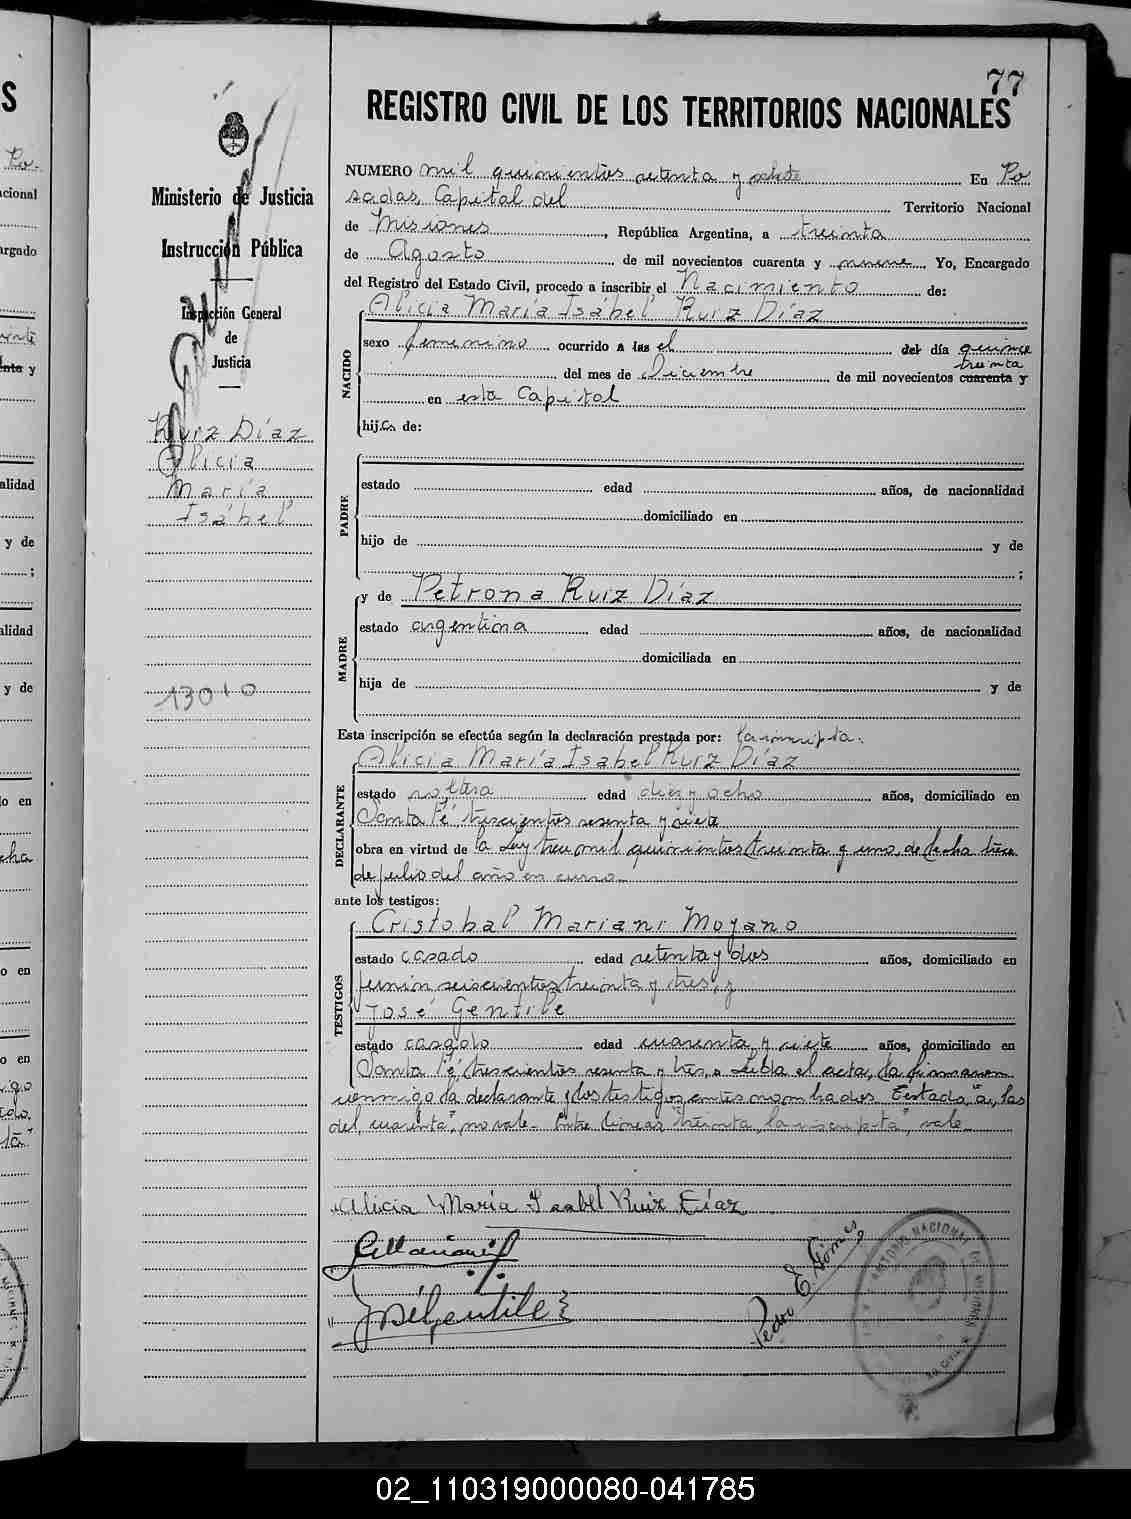 77
REGISTRO CIVIL DE LOS TERRITORIOS NACIONALES
Ministerio de Justicia
Instrucción Pública
Inspección General
de
Justicia
Ruiz Díaz
Alicia
María
Isábel
13010
NUMERO mil quinientos setenta y siete En Po
sadas, Capital del Territorio Nacional
de Misiones, República Argentina, a treinta
de Agosto de mil novecientos cuarenta y nueve. Yo, Encargado
del Registro del Estado Civil, procedo a inscribir el Nacimiento de:
Alicia María Isábel Ruiz Díaz
NACIDO
sexo femenino ocurrido a las el del día quince
treinta
del mes de Diciembre de mil novecientos cuarenta y
en esta Capital
hij.a de:
PADRE
estado edad años, de nacionalidad
domiciliado en
hijo de y de
;
MADRE
y de Petrona Ruiz Díaz
estado argentina edad años, de nacionalidad
domiciliada en
hija de y de
Esta inscripción se efectúa según la declaración prestada por: la inscripta:
Alicia María Isabel Ruiz Díaz
DECLARANTE
estado soltera edad diez y ocho años, domiciliado en
Santa Fé trescientos sesenta y siete
obra en virtud de la Ley trece mil quinientos treinta y uno, de fecha trece
de julio del año en curso
ante los testigos:
Cristobal Mariani Moyano
TESTIGOS
estado casado edad setenta y dos años, domiciliado en
Junín seiscientos treinta y tres, y
José Gentile
estado casado edad cuarenta y siete años, domiciliado en
Santa Fé, trescientos sesenta y tres, Leída el acta, la firmaron
conmigo la declarante y los testigos antes nombrados. Testado, "a, las
del, cuarenta", no vale. Entre líneas "treinta, la inscripta", vale
Alicia María Isabel Ruiz Díaz
José Gentile
Pedro E. Gómez
02_110319000080-041785